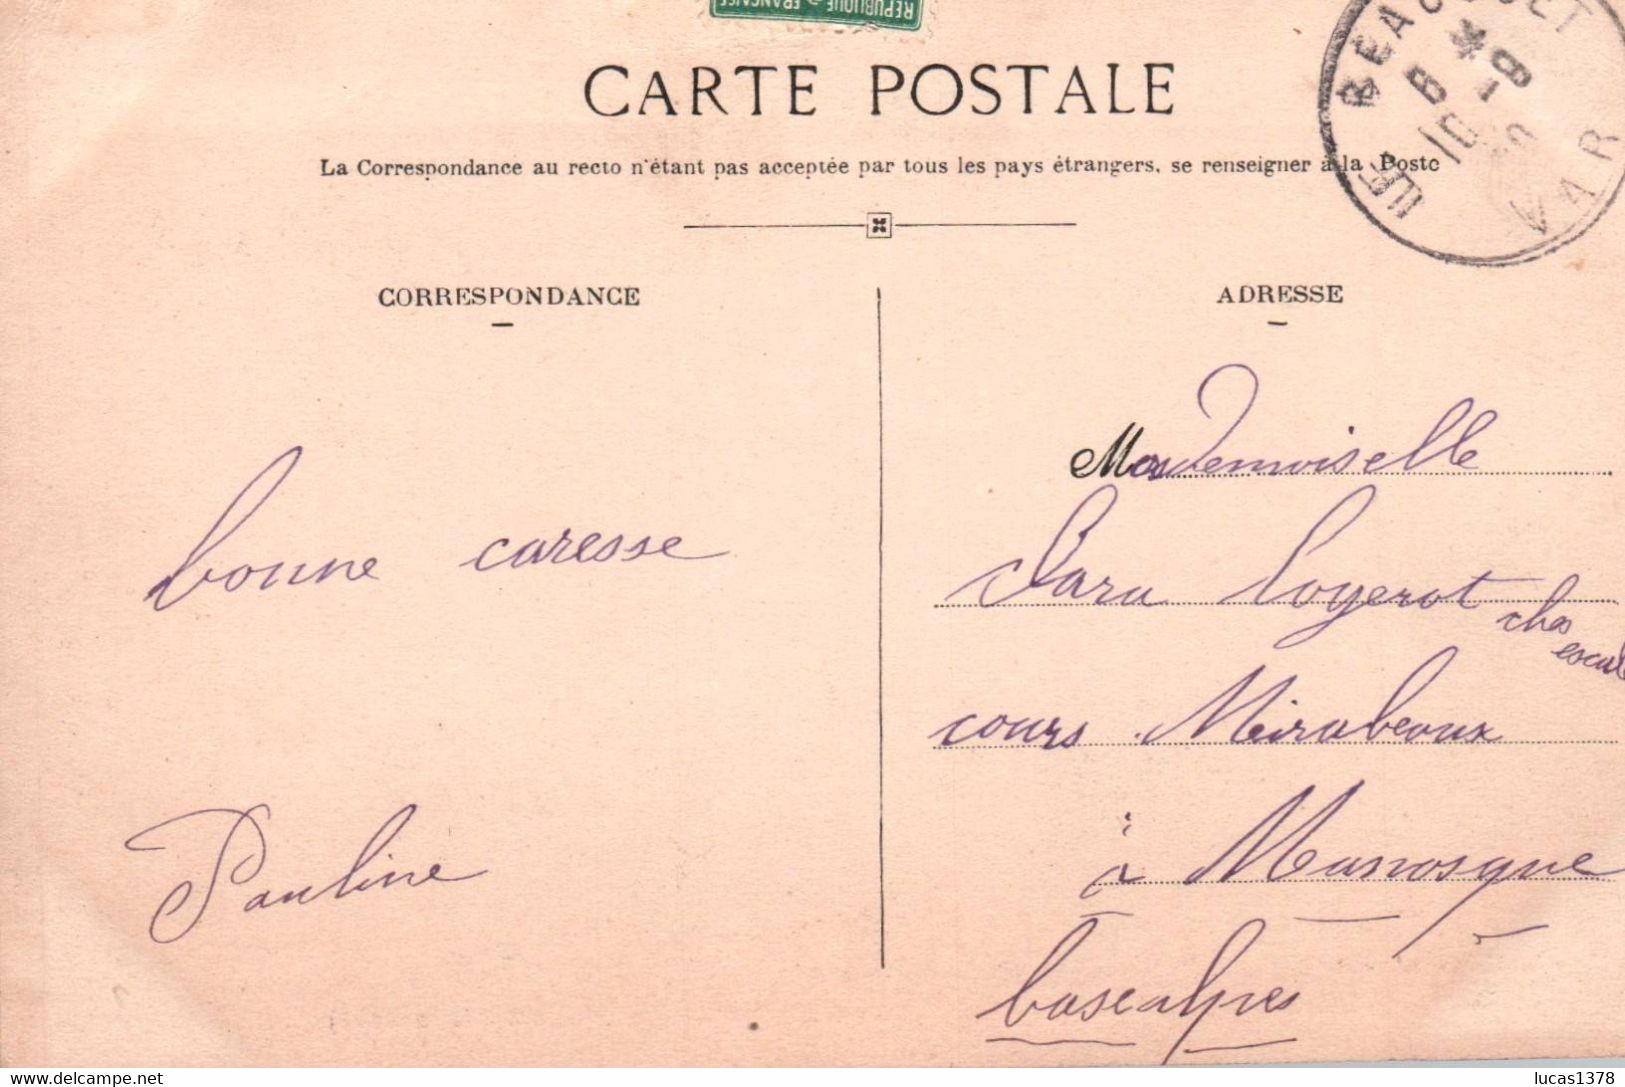 RÉPUBLIQUE FRANÇAISE
CARTE POSTALE
La Correspondance au recto n'étant pas acceptée par tous les pays étrangers, se renseigner à la Poste
LE BEAUSSET
8 *
10 -8
VAR
CORRESPONDANCE
ADRESSE
bonne caresse
Pauline
Mademoiselle
Clara Loyerot
cours Mirabeaux
à Manosque
basealpes
www.delcampe.net
lucas1378